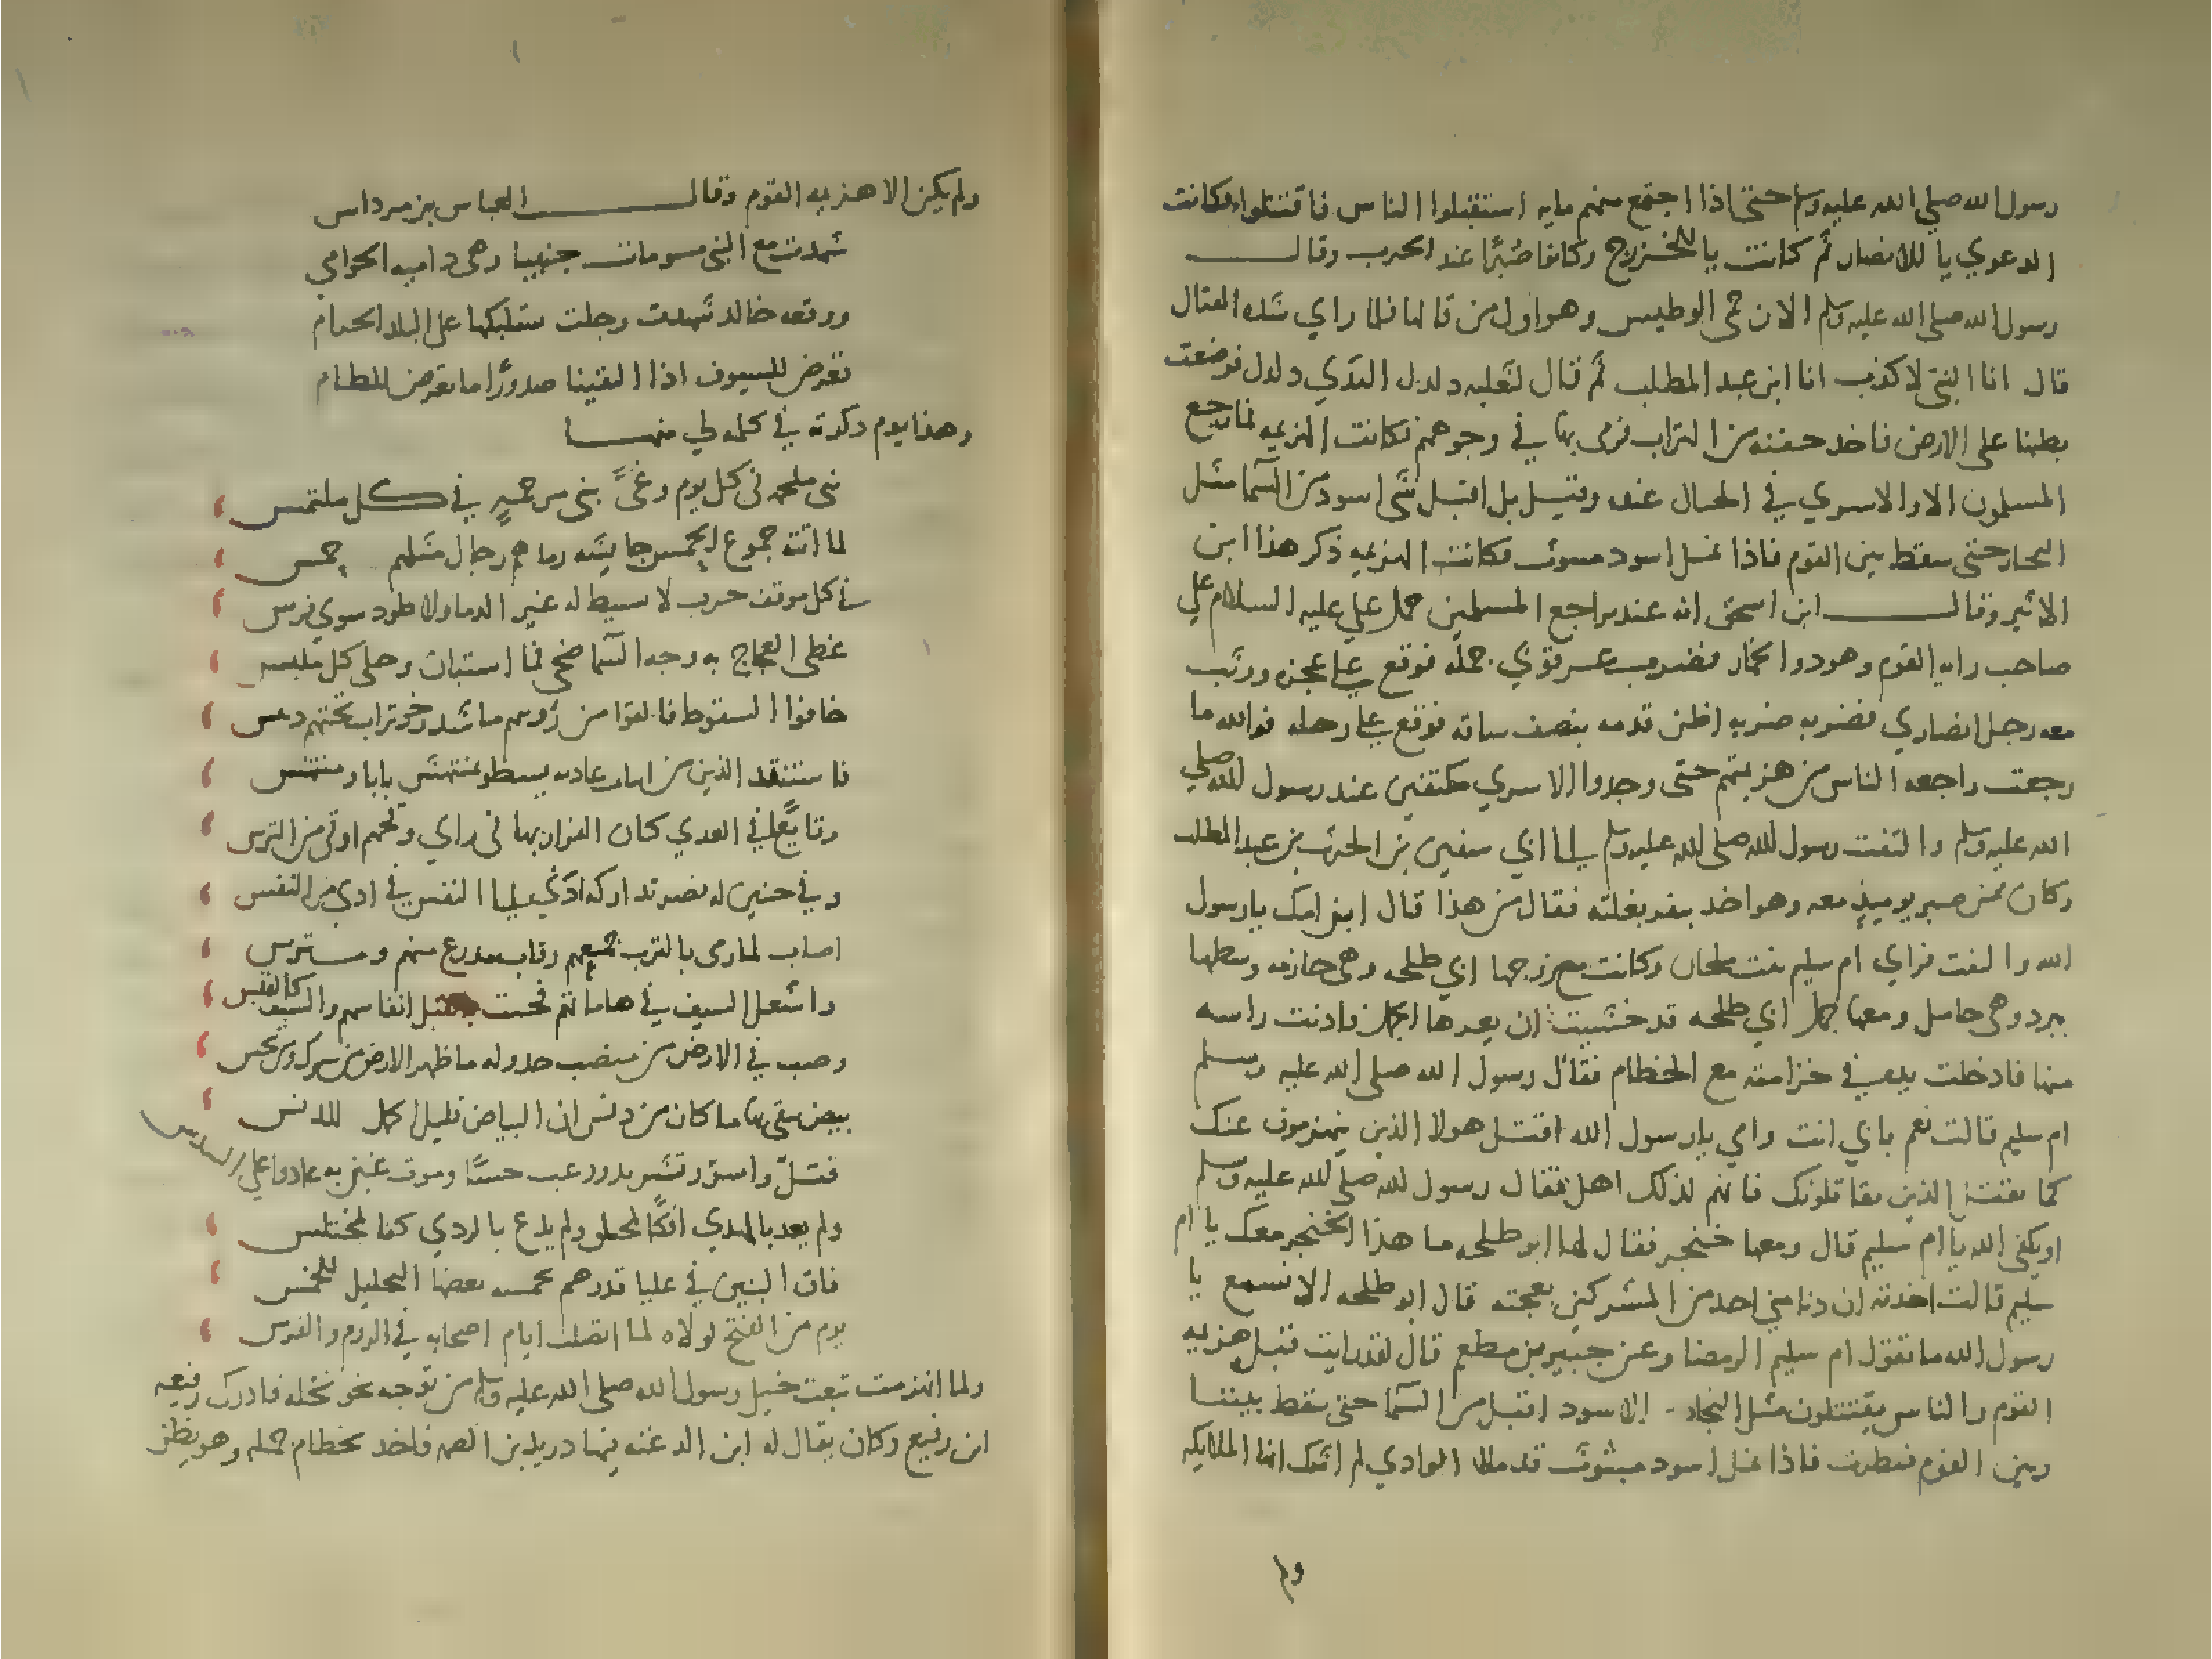 رسول الله صلي الله عليه وسلم حتي اذا اجتمع منهم مايه استقبلوا الناس فاقتتلوا وكانت
الدعوي يا للانصار ثم كانت يا للخزرج وكانوا صُبرًا عند الحرب وقال
رسول الله صلي الله عليه وسلم الان حمي الوطيس وهو اول من قالها فلما راي شده القتال
قال انا النبي لا كذب انا ابن عبد المطلب ثم قال لبغلته دلدل البدي دلدل فوضعت
بطنها علي الارض فاخد حفنه من التراب فرمي بها في وجوههم فكانت الهزيمه فما رجع
المسلمون الا والاسري في الحبال عنده وقيل بل اقبل شي اسود من السما مثل
البجاد حتي سقط بين القوم فاذا نمل اسود مبثوث فكانت الهزيمه ذكر هذا ابن
الاثير وقال ابن اسحق انه عند تراجع المسلمين حمل علي عليه السلام علي
صاحب رايه القوم وهو دو الخمار فضرب عرقوبي جمله فوقع علي عجزه ووثب
معه رجل انصاري فضربه ضربه اطن قدمه بنصف ساقه فوقع علي رحله فوالله ما
رجعت راجعه الناس من هزيمتهم حتي وجدوا الاسري مكتفين عند رسول الله صلي
الله عليه وسلم والتفت رسول الله صلي الله عليه وسلم الي ابي سفين بن الحرث بن عبد المطلب
وكان ممن صبر يوميذٍ معه وهو اخد بثفر بغلته فقال من هذا قال ابن امك يا رسول
الله والتفت فراي ام سليم بنت ملحان وكانت مع زوجها ابي طلحه وهي حازمه وسطها
ببرد وهي حامل ومعها جمل ابي طلحه قد خشيت ان يعرها الجمل فادنت راسه
منها فادخلت يدها في خزامته مع الخطام فقال رسول الله صلي الله عليه وسلم
ام سليم قالت نعم بابي انت وامي يا رسول الله اقتل هولا الذين ينهزمون عنك
كما تقتل الذين يقاتلونك فانهم لذلك اهل فقال رسول الله صلي الله عليه وسلم
او يكفي الله يا ام سليم قال ومعها خنجر فقال لها ابو طلحه ما هذا الخنجر معك يا ام
سليم قالت اخدته ان دنا مني احد من المشركين بعجته قال ابو طلحه الا تسمع يا
رسول الله ما تقول ام سليم الرمضا وعن جبير بن مطعم قال لقد رايت قبل هزيمه
القوم والناس يقتتلون مثل البجاد الاسود اقبل من السما حتي سقط بيننا
وبين القوم فنظرت فاذا نمل اسود مبثوث قد ملا الوادي لم اشك انها الملايكه
ولم
ولم يكن الا هزيمه القوم وقال العباس بن مرداس
شهدت مع النبي مسومات حنينا وهي داميه الحوامي
ووقعه خالد شهدت وجلت سنابكها علي البلد الحرام
نعرض للسيوف اذا التقينا صدورًا ما تعرض للطام
وهذا يوم دكرته في كلمه لي منها
في كل يوم وغيً في كل ملتمس
لما اتت جموع رجال مثلهم حمس
في كل موقف حرب لا له غير الدما ولا طود سوي فرس
غطي العجاج به وجه السما ضحي فما استبان وحلي كل ملبس
خافوا السقوط فالقوا من رؤوسهم ما شد تراب تحتهم دهس
فاستنقد الذين من
وقايع في العدي كان القران بها في راي او في من الترس
وفي حنين له نصر تداركه ادني الي النفس في من النفس
اصاب لما رمي بالترب جميعهم منهم ومسترس
واشعل السيف في هاماتهم فخبت قبل انفاسهم والسيف كالقبس
وصب في الارض من جدوله ما ظهر الارض من شرك ومن نجس
بيض بقي بها ما كان من دنس ان البياض قليل للدنس
قتلٌ واسرٌ ورعب
ولم يعد بالهدي ولم يدع بالردي كفا لمختلس
فان النبيين في عليا قدرهم للخمس
يوم من الفتح لولاه لما اتصلت ايام اصحابه في الروم والفرس
ولما انهزمت تبعت خيل رسول الله صلي الله عليه وسلم من توجه نحو نخله فادرك ربيعه
ابن رفيع وكان يقال له ابن الدغنه فيها دريد بن الصمه فاخد بخطام جمله وهو يظن